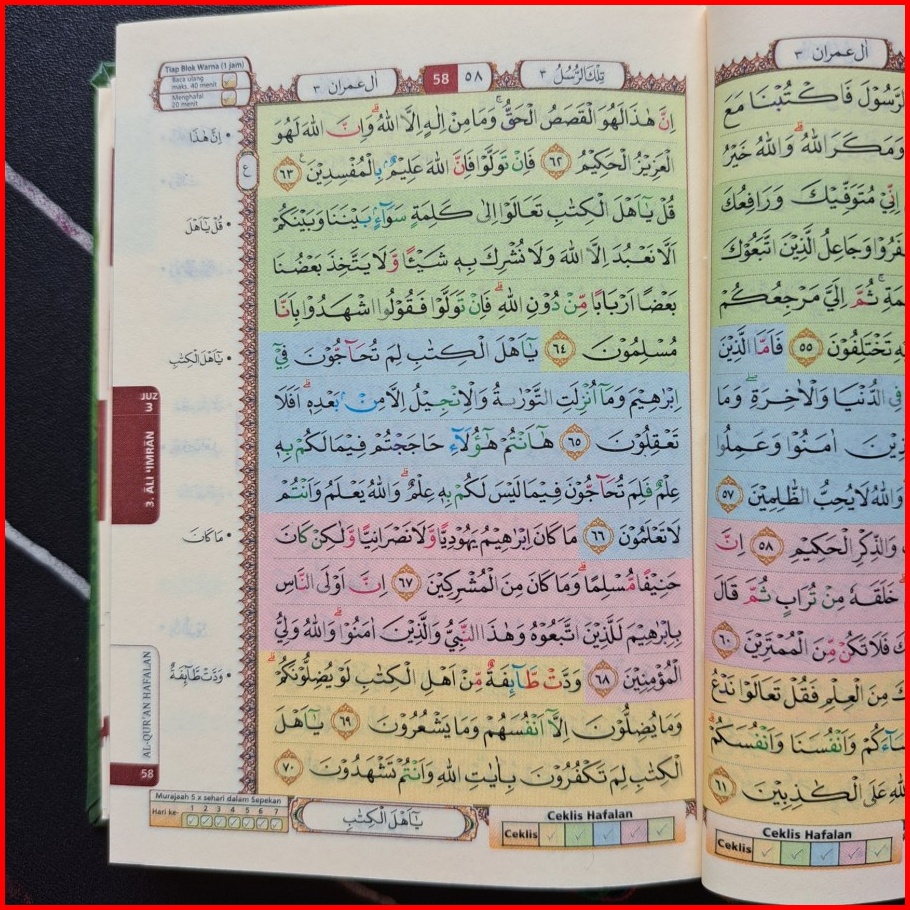 Tiap Blok Warna (1 jam)
Baca ulang
maks. 40 menit
Menghafal
20 menit
اٰل عمران ٣
58 ٥٨
تِلْكَ الرُّسُلُ ٣
اِنَّ هٰذَا لَهُوَ الْقَصَصُ الْحَقُّ ۚ وَمَا مِنْ اِلٰهٍ اِلَّا اللّٰهُ ۗ وَاِنَّ اللّٰهَ لَهُوَ
الْعَزِيْزُ الْحَكِيْمُ ٦٢ فَاِنْ تَوَلَّوْا فَاِنَّ اللّٰهَ عَلِيْمٌۢ بِالْمُفْسِدِيْنَ ࣖ ٦٣
قُلْ يٰٓاَهْلَ الْكِتٰبِ تَعَالَوْا اِلٰى كَلِمَةٍ سَوَاۤءٍۢ بَيْنَنَا وَبَيْنَكُمْ
اَلَّا نَعْبُدَ اِلَّا اللّٰهَ وَلَا نُشْرِكَ بِهٖ شَيْـًٔا وَّلَا يَتَّخِذَ بَعْضُنَا
بَعْضًا اَرْبَابًا مِّنْ دُوْنِ اللّٰهِ ۗ فَاِنْ تَوَلَّوْا فَقُوْلُوا اشْهَدُوْا بِاَنَّا
مُسْلِمُوْنَ ٦٤ يٰٓاَهْلَ الْكِتٰبِ لِمَ تُحَاۤجُّوْنَ فِيْٓ
اِبْرٰهِيْمَ وَمَآ اُنْزِلَتِ التَّوْرٰىةُ وَالْاِنْجِيْلُ اِلَّا مِنْۢ بَعْدِهٖ ۗ اَفَلَا
تَعْقِلُوْنَ ٦٥ هٰٓاَنْتُمْ هٰٓؤُلَاۤءِ حَاجَجْتُمْ فِيْمَا لَكُمْ بِهٖ
عِلْمٌ فَلِمَ تُحَاۤجُّوْنَ فِيْمَا لَيْسَ لَكُمْ بِهٖ عِلْمٌ ۗ وَاللّٰهُ يَعْلَمُ وَاَنْتُمْ
لَا تَعْلَمُوْنَ ٦٦ مَا كَانَ اِبْرٰهِيْمُ يَهُوْدِيًّا وَّلَا نَصْرَانِيًّا وَّلٰكِنْ كَانَ
حَنِيْفًا مُّسْلِمًا ۗ وَمَا كَانَ مِنَ الْمُشْرِكِيْنَ ٦٧ اِنَّ اَوْلَى النَّاسِ
بِاِبْرٰهِيْمَ لَلَّذِيْنَ اتَّبَعُوْهُ وَهٰذَا النَّبِيُّ وَالَّذِيْنَ اٰمَنُوْا ۗ وَاللّٰهُ وَلِيُّ
الْمُؤْمِنِيْنَ ٦٨ وَدَّتْ طَّاۤىِٕفَةٌ مِّنْ اَهْلِ الْكِتٰبِ لَوْ يُضِلُّوْنَكُمْ ۗ
وَمَا يُضِلُّوْنَ اِلَّآ اَنْفُسَهُمْ وَمَا يَشْعُرُوْنَ ٦٩ يٰٓاَهْلَ
الْكِتٰبِ لِمَ تَكْفُرُوْنَ بِاٰيٰتِ اللّٰهِ وَاَنْتُمْ تَشْهَدُوْنَ ٧٠
ع
اِنَّ هٰذَا
قُلْ يٰٓاَهْلَ
يٰٓاَهْلَ الْكِتٰبِ
مَا كَانَ
وَدَّتْ طَّاۤىِٕفَةٌ
JUZ
3
3. ĀLI ‘IMRĀN
AL-QUR'AN HAFALAN
58
Murajaah 5 x sehari dalam Sepekan
Hari ke- 1 2 3 4 5 6 7
يٰٓاَهْلَ الْكِتٰبِ
Ceklis Hafalan
Ceklis
اٰل عمران ٣
الرَّسُوْلَ فَاكْتُبْنَا مَعَ
وَمَكَرَ اللّٰهُ ۗ وَاللّٰهُ خَيْرُ
اِنِّيْ مُتَوَفِّيْكَ وَرَافِعُكَ
كَفَرُوْا وَجَاعِلُ الَّذِيْنَ اتَّبَعُوْكَ
ثُمَّ اِلَيَّ مَرْجِعُكُمْ
تَخْتَلِفُوْنَ ٥٥ فَاَمَّا الَّذِيْنَ
فِى الدُّنْيَا وَالْاٰخِرَةِ ۖ وَمَا
اٰمَنُوْا وَعَمِلُوا
وَاللّٰهُ لَا يُحِبُّ الظّٰلِمِيْنَ ٥٧
وَالذِّكْرِ الْحَكِيْمِ ٥٨ اِنَّ
خَلَقَهٗ مِنْ تُرَابٍ ثُمَّ قَالَ
فَلَا تَكُنْ مِّنَ الْمُمْتَرِيْنَ ٦٠
مِنَ الْعِلْمِ فَقُلْ تَعَالَوْا نَدْعُ
وَاَنْفُسَنَا وَاَنْفُسَكُمْ
عَلَى الْكٰذِبِيْنَ ٦١
Ceklis Hafalan
Ceklis